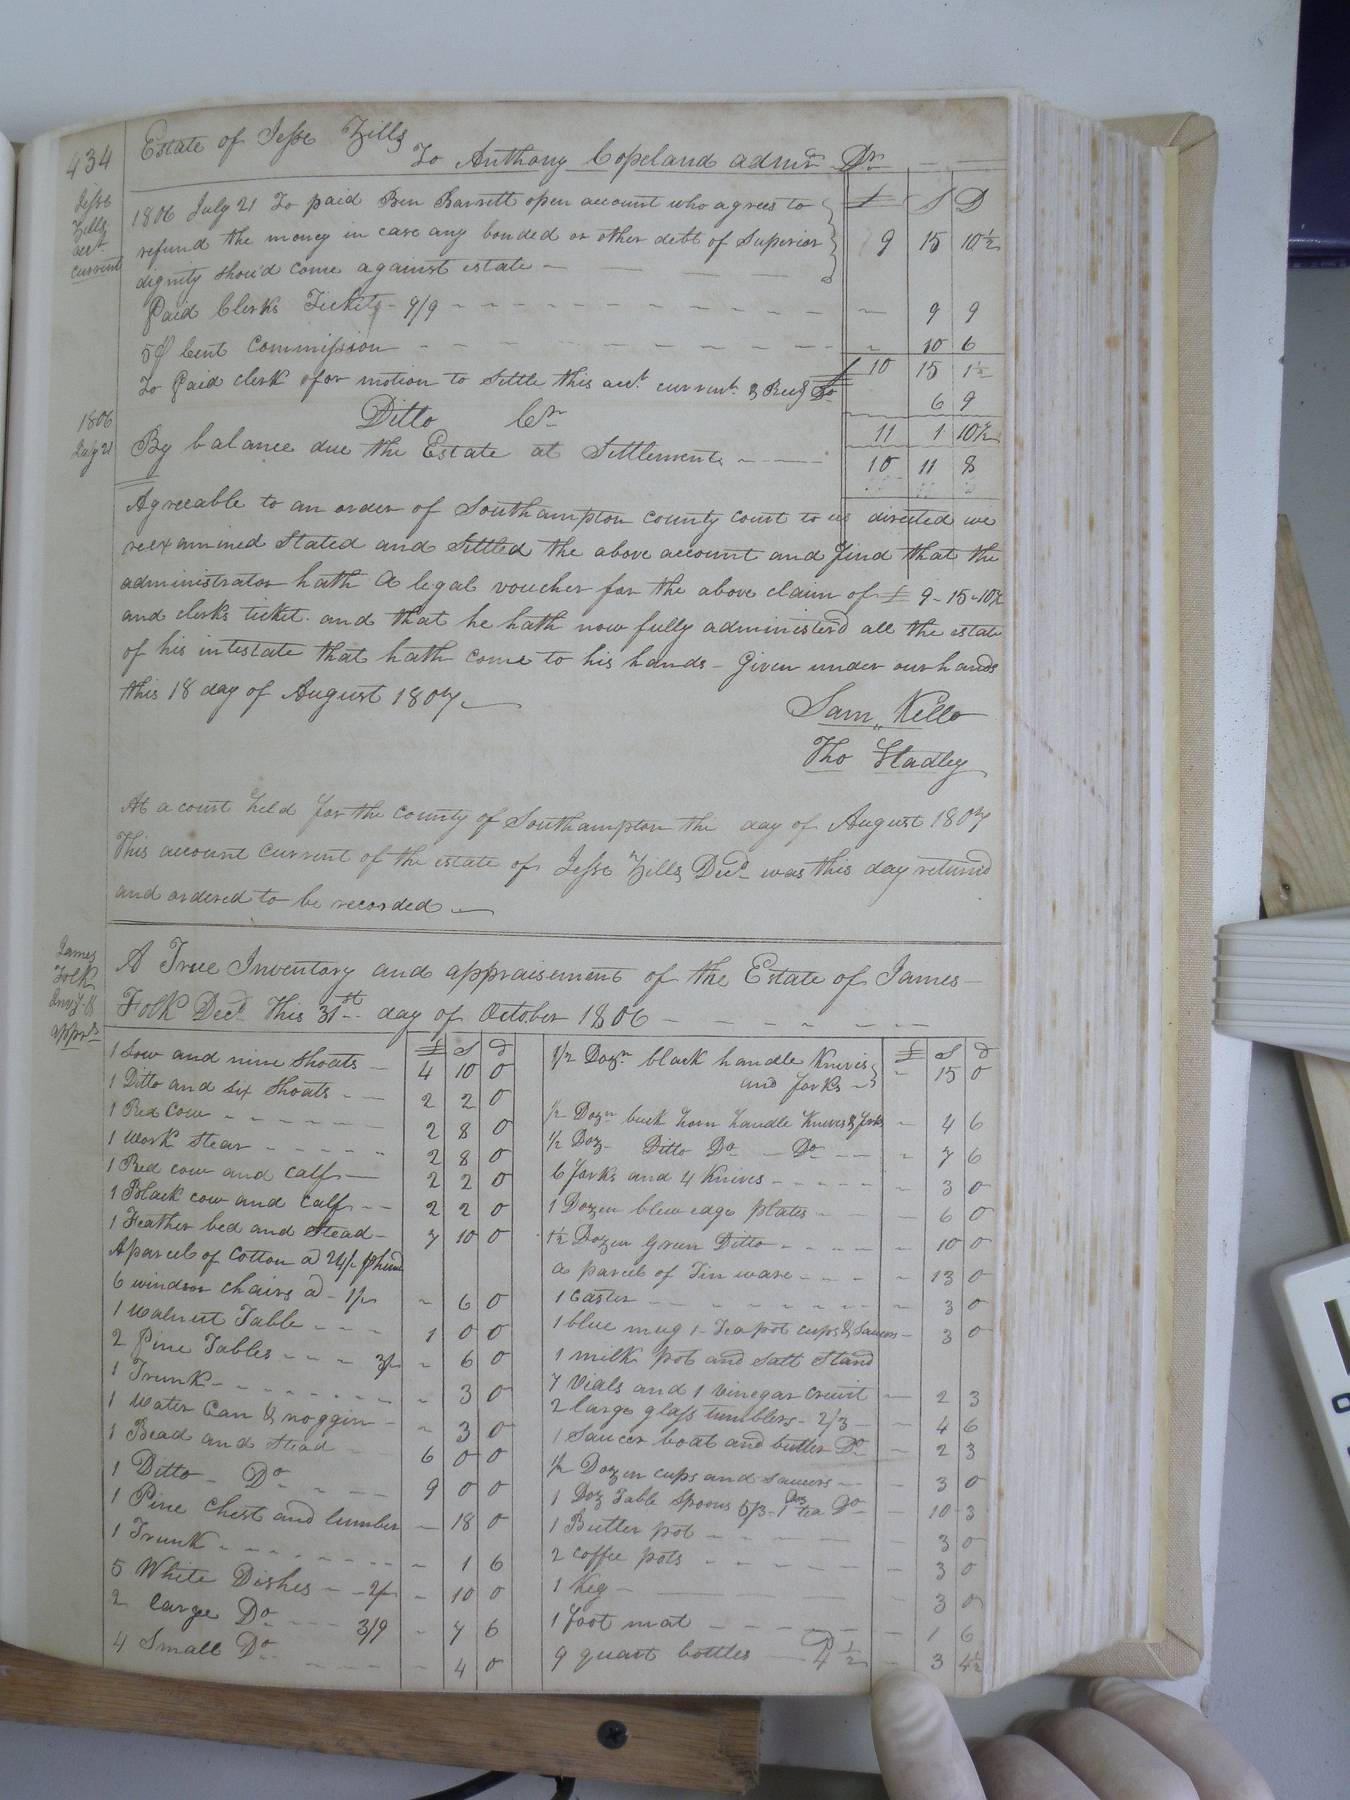 434
Estate of Jesse Zills
To Anthony Copeland admr. Dr.
Jesse
Zills
acct
current
£ S D
1806 July 21 To paid Ben Barrett open account who agrees to
refund the money in case any bonded or other debt of Superior
dignity shou'd come against estate — 9 15 10½
Paid Clerks Tickets - 9/9 - - - 9 9
5 ⅌ Cent Commission - - - 10 6
£ 10 15 1½
To Paid clerk for motion to settle this acct. current & Recg Do 6 9
11 1 10½
1806
July 21
Ditto Cr.
By balance due the Estate at Settlement - - - 10 11 8
Agreeable to an order of Southampton County Court to us directed we
reexamined Stated and Settled the above account and find that the
administrator hath a legal voucher for the above claim of £ 9-15-10½
and clerks ticket. and that he hath now fully administerd all the estate
of his intestate that hath come to his hands - Given under our hands
this 18 day of August 1807
Sam. Kello
Tho
At a court held for the county of Southampton the day of August 1807
This account current of the estate of Jesse Zills Decd. was this day returnd
and ordered to be recorded
James
Folk
Invy &
apprs
A True Inventory and appraisement of the Estate of James
Folk Decd. This 31st day of October 1806
£ S d
1 Sow and nine Shoats - 4 10 0
1 Ditto and six Shoats - - 2 2 0
1 Red Cow - - - 2 8 0
1 Work Stear - - - 2 8 0
1 Red cow and calf - 2 2 0
1 Black cow and calf - - 2 2 0
1 Feather bed and Stead - 7 10 0
A parcel of Cotton a 24/- ⅌ hund
6 windsor chairs a - 1/- - 6 0
1 Walnut Table - - - 1 0 0
2 Pine Tables - - - 3/- - 6 0
1 Trunk - - - 3 0
1 Water Can & noggin - 3 0
1 Bead and Stead - 6 0 0
1 Ditto - Do - - 9 0 0
1 Pine Chest and lumber - 18 0
1 Trunk - - - 1 6
5 White Dishes - - 2/- - 10 0
2 Large Do - - 3/9 - 7 6
4 Small Do - - - 4 0
£ S d
1/2 Dozn. black handle Knives
and forks - 15 0
1/2 Dozn buck horn handle Knives & forks - 4 6
1/2 Doz - Ditto Do - Do - - 7 6
6 forks and 4 Knives - - - 3 0
1 Dozen blew edge plates - - 6 0
1½ Dozen Green Ditto - - - 10 0
a parcel of Tin ware - - - 13 0
1 Caster - - - 3 0
1 blue mug 1 - Tea pot cups & Saucers - 3 0
1 milk pot and Salt Stand
7 Vials and 1 vinegar cruit - 2 3
2 large glass tumblers - 2/3 - 4 6
1 Saucer boat and butter Do - 2 3
1/2 Dozen cups and saucers - - 3 0
1 Doz Table Spoons 5/3 - 1 Doz tea Do - 10 3
1 Butter pot - - - 3 0
2 Coffee pots - - - 3 0
1 Keg - - - 3 0
1 foot mat - - - 1 6
9 quart bottles - 4½ - 3 4½